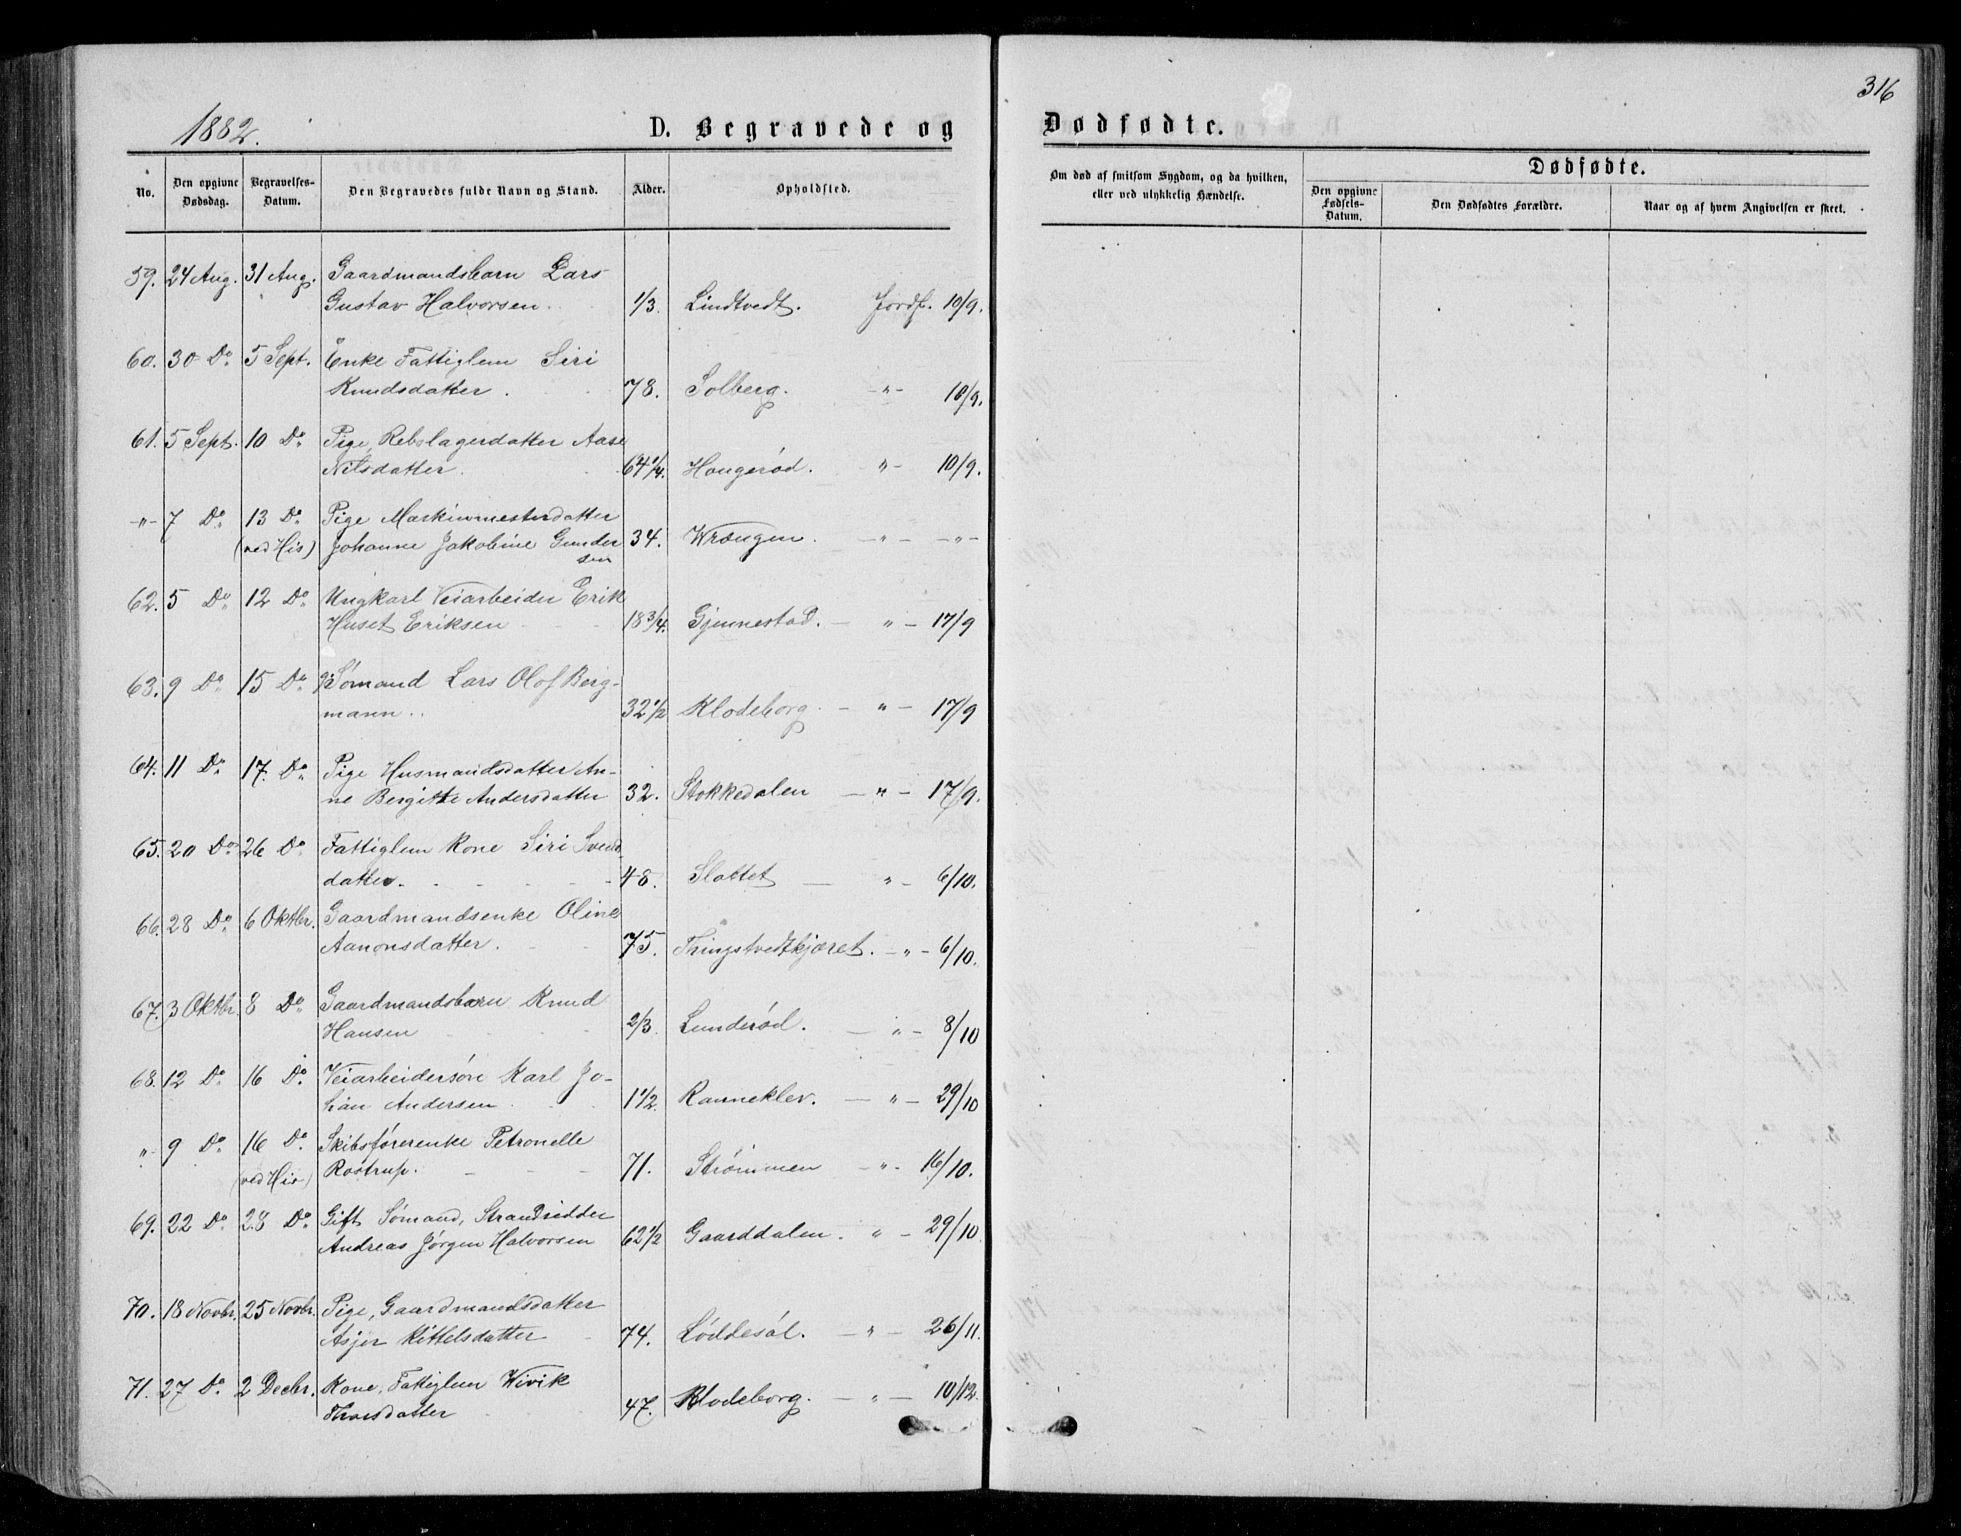 316
1882.
D. Begravede og Dødfødte.
No.
Den opgivne Dødsdag.
Begravelses-Datum.
Den Begravedes fulde Navn og Stand.
Alder.
Opholdsted.
Om død af smitsom Sygdom, og da hvilken, eller ved ulykkelig Hændelse.
Dødfødte.
Den opgivne Fødsels-Datum.
Den Dødfødtes Forældre.
Naar og af hvem Angivelsen er skeet.
59. 24 Aug. 31 Aug. Gaardmandsbarn Lars
Gustav Halvorsen. 1/3. Lindtvedt. Jordf. 10/9.
60. 30 Do. 5 Sept. Enke Fattiglem Siri
Knudsdatter. 78. Solberg. -"- 10/9.
61. 5 Sept. 10 Do. Pige, Rebslagerdatter Aase
Nilsdatter. 64 1/4. Haugerød. "- 10/9.
-"- 7 Do. 13 Do. Pige Maskinmesterdatter
(ved His) Johanne Jakobine Gunder 34. Wrængen. -"- -"-
sen
62. 5 Do. 12 Do. Ungkarl Veiarbeider Erik
Huset Eriksen 18 3/4. Gjennestad. - " - 17/9
63. 9 Do. 15 Do. Sømand Lars Olof Berg-
mann.. 32 1/2 Klodeborg. - " - 17/9
64. 11 Do. 17. Do. Pige Husmandsdatter An-
ne Bergitte Andersdatter 32. Stokkedalen - " - 17/9.
65. 20 Do. 26 Do. Fattiglem Kone Siri Svends
datter. 48. Slottet - " - 6/10.
66. 28 Do. 6 Oktbr. Gaardmandsenke Oline
Aanonsdatter. 75. Thingstvedtkjæret. - " - 6/10.
67. 3 Oktbr. 8 Do. Gaardmandsbarn Knud
Hansen 2/3. Lunderød. - " - 8/10
68. 12 Do. 16 Do. Veiarbeidersøn Karl Jo-
han Andersen 1 1/2. Ranneklev. - " - 29/10
"- 9 Do. 16 Do. Skibsførerenke Petronelle
(ved His) Rostrup. 71. Strømmen - " - 16/10.
69. 22 Do. 28 Do. Gift Sømand, Strandsidder
Andreas Jørgen Halvorsen 62 1/2 Gaarddalen. " - 29/10.
70. 18 Novbr. 25 Novbr. Pige, Gaardmandsdatter
Asjer Kittelsdatter 74. Løddesøl. - " - 26/11.
71. 27 Do. 2 Decbr. Kone, Fattiglem Wivik
Thorsdatter 47. Klodeborg. - " - 10/12.